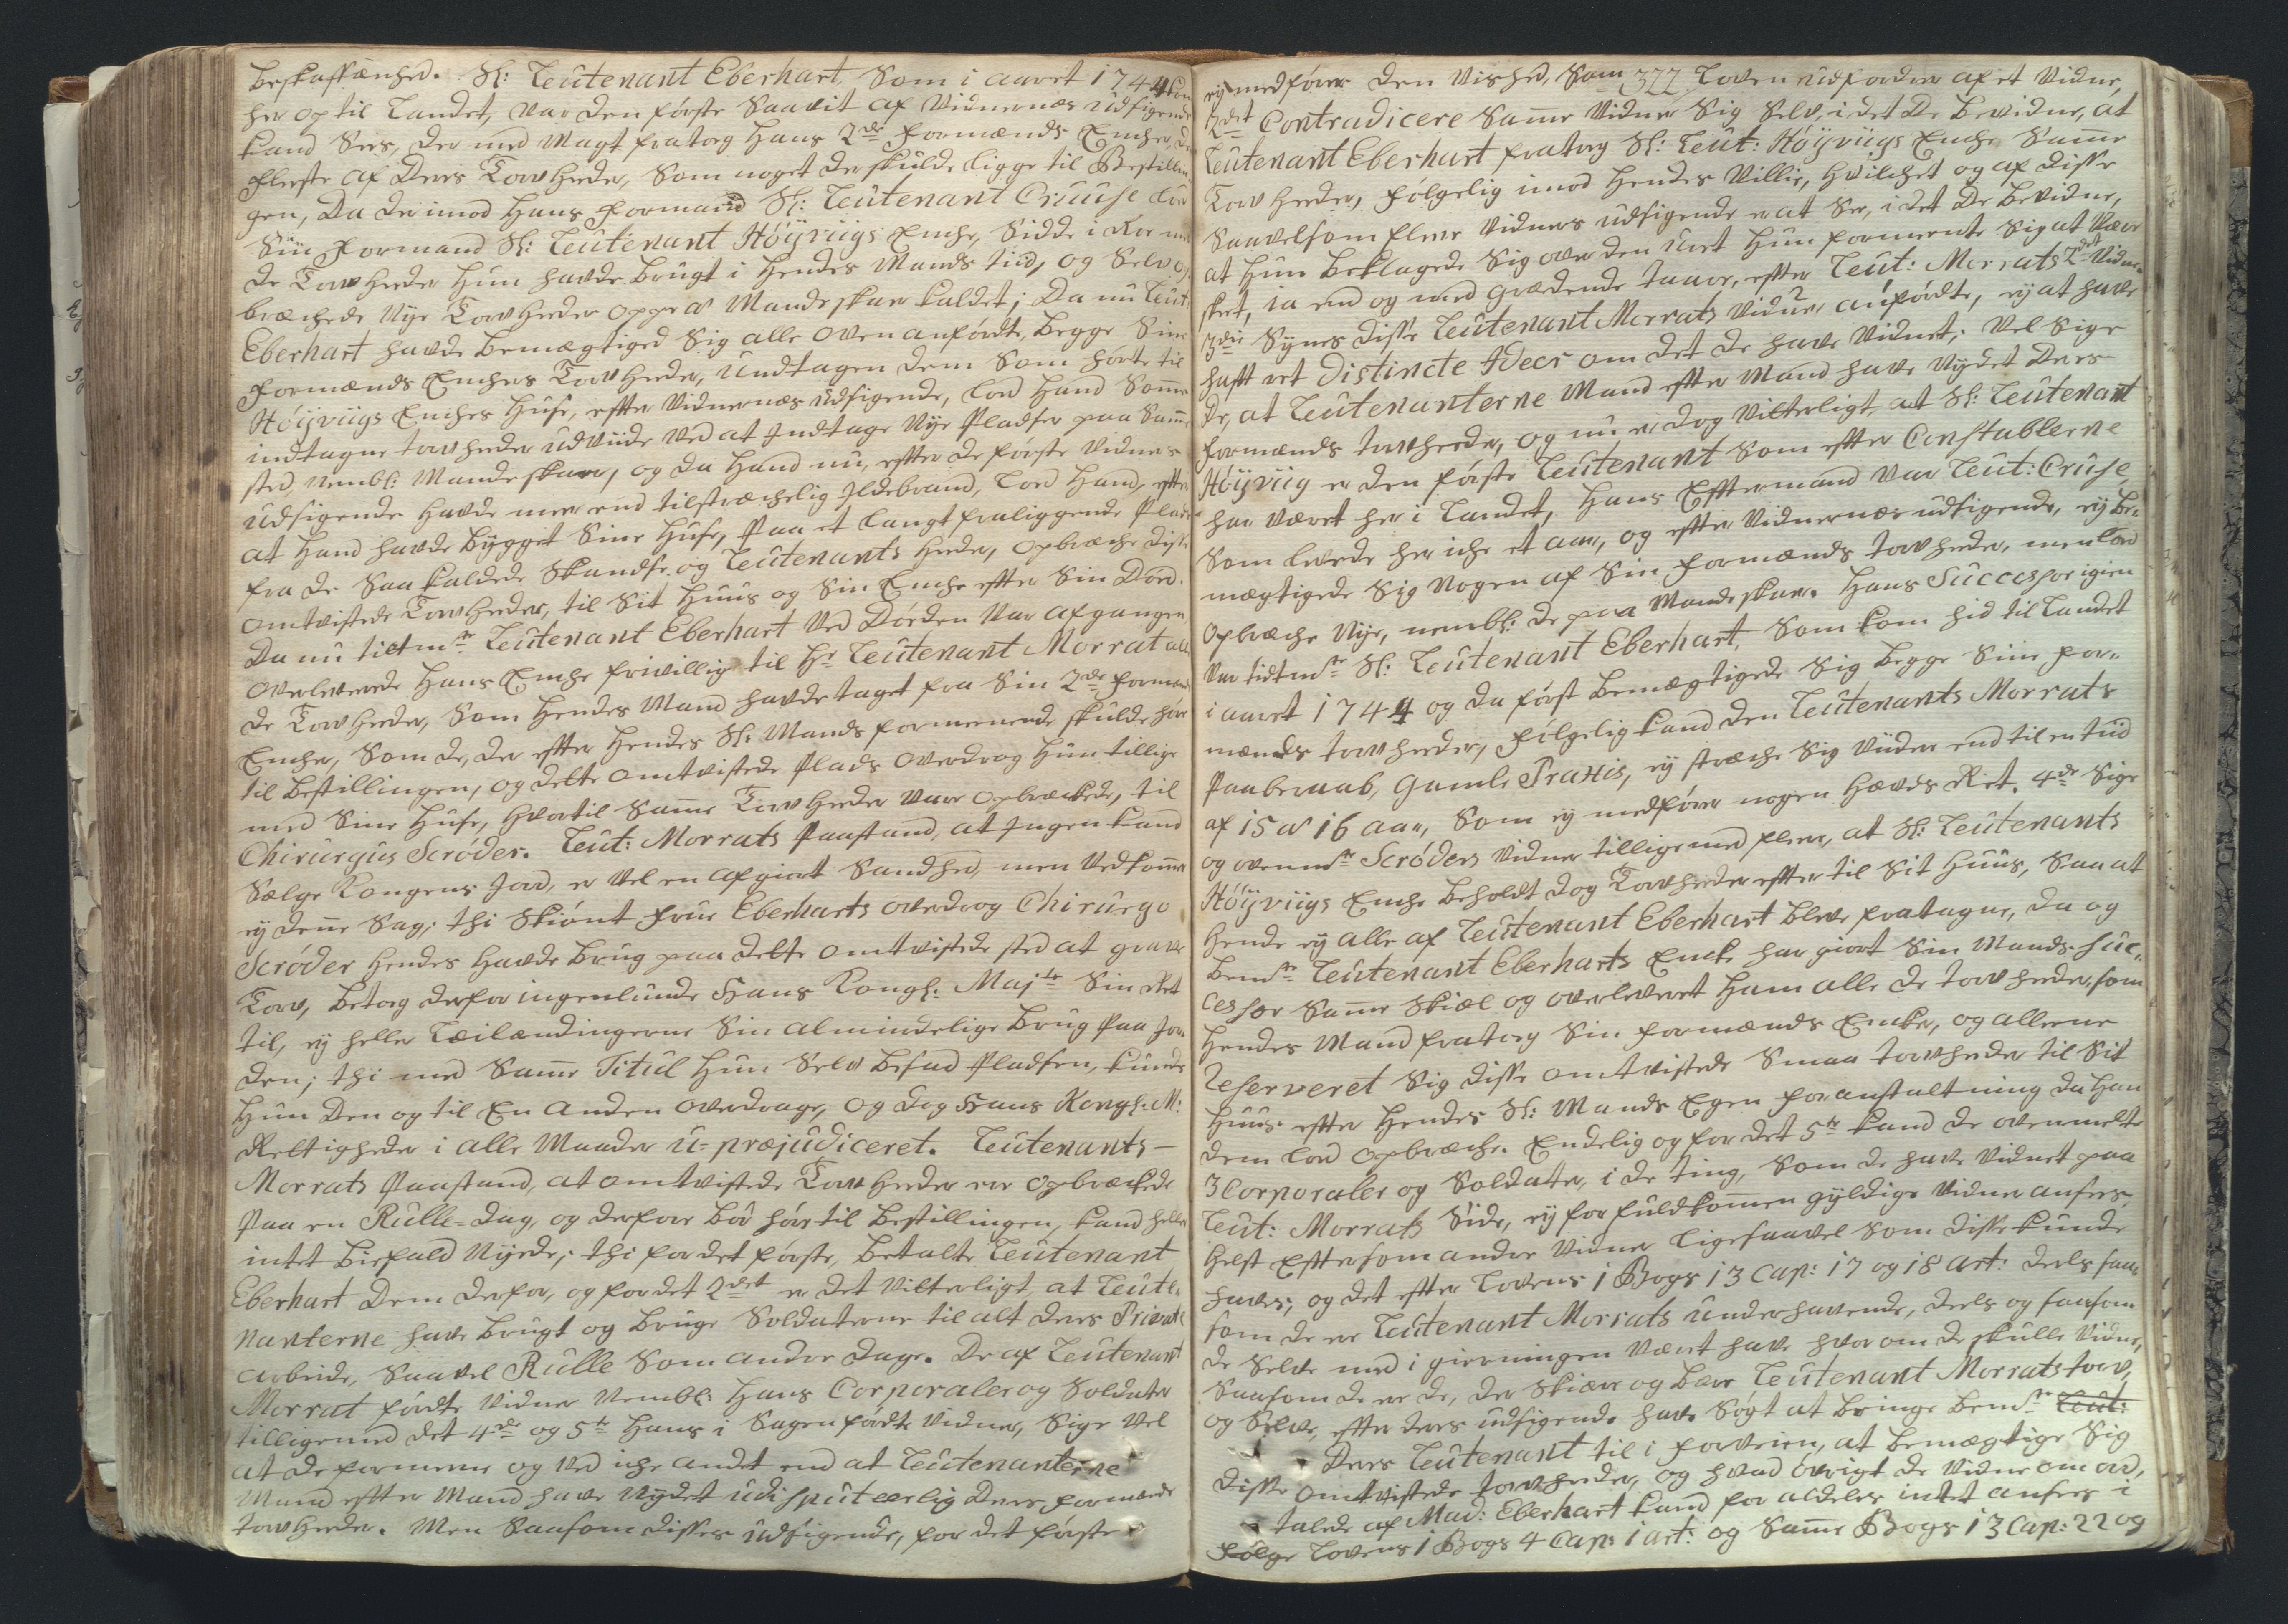 beskaffenhed. Sl: Leutenant Eberhart, Som i aaret 1744 kom
her op til Landet, var den første Saavit af Vidnernes udsigende
kand Sees, der med Magt fratog Hans 2de Formænds Encher, de
fleeste af Deres Torvheder, Som noget der skulde ligge til Bestillin„
gen, Da derimod Hans Formand Sl: Leutenant Cruuse lod
Siin Formand Sl: Leutenant Höyviigs Enche, Sidde i Roe med
de Torvheder Hun havde brugt i Hendes Mands tiid, og Selv op„
brechede Nye Torvheder oppe paa Mandeskar kaldet; Da nu Leut:
Eberhart havde bemægtiged Sig alle ovenanførdte, begge Sine
Formænds Enchers Torvheder, Undtagen dem Som hörte til
Höyviigs Enches Huse, efter Vidnernes udsigende, lod Hand Samme
indtagne torvheder udviide ved at Indtage Nye Pladser paa Samme
sted, nembl: Mandeskar, og da Hand nu, efter de første Vidners
udsigende havde meer end tilstrechelig Ildebrand, lod Hand, efter
at Hand havde bygget Sine Huse, Paa et langt fraliggende Plads
fra de Saa kaldede Skandse og Leutenants Heder, opbreche disse
omtvistede Torvheder, til Sit Huus og Sin Enche efter Sin Død.
Da nu tidtnr Leutenant Eberhart ved Døden var afgangen
overleverede Hans Enche frivillig til Hr Leutenant Morrat alle
de Torvheder, Som Hendes Mand havde taget fra Sin 2de Formænds
Encher, Som de, der efter Hendes Sl: Mands formeenende skulde høre
til bestillingen, og dette omtvistede Plads overdrog Hun tillige
med Sine Huse, hvortil Samme Torvheder vare opbrechede, til
Chirurgus Scröder. Leut: Morrats Paastand, at Ingen kand
Sælge Kongens Jord, er vel en afgiort Sandhed, men vedkommer
ey denne Sag; thi Skiønt Frue Eberharts overdrog Chirurgo
Scröder Hendes havde brug paa dette omtvistede sted at grave
Torv, betog derfor ingenlunde Hans Kongl: Majts Sin Ret
til, ey heller Leilændingerne Sin almindelige brug Paa Jor„
den; thi med Samme Titul Hun Selv besad Pladsen, kunde
Hun den og til En anden overdrage, og dog Hans Kongl: M:
Rettigheder i alle Maader u-præjudiceret. Leutenants-
Morrats Paastand, at omtvistede Torvheder ere opbrechede
Paa en Rulle-dag, og derfore bør høre til bestillingen, kand heller
intet biefald Nyde; thi for det første, betalte Leutenant
Eberhart Dem derfor, og for det 2det er det vitterligt, at Leute„
nanterne have brugt og bruge Soldaterne til alt deres Private
arbeide, Saavel Rulle Som andre dage. De af Leutenant
Morrat førdte Vidner nembl: Hans Corporaler og Soldater
tilligemed det 4de og 5te Hans i Sagen førdte Vidner, Sige vel
at de formeene og ved iche andet end at Leutenanterne
Mand efter Mand have nydet udisputeerlig Deres Formænds
torvheder. Men Saasom disses udsigende, for det første
ey medfører den Vished, Som 377 Loven udfordrer af et Vidne,
2det Contradicere Samme Vidner Sig Selv, i det De bevidne, at
Leutenant Eberhart fratog Sl: Leut: Höyviigs Enche Samme
Torvheder, følgelig imod Hendes Villie, hvilchet og af disse
Saavelsom fleere Vidners udsigende er at See, i det De bevidne,
at Hun beklagede Sig over den Uret Hun formeente Sig at være
skeet, ia end og med grædende taarer, efter Leut: Morrats 2det Vidne.
3die Synes disse Leutenant Morrats Vidner anførdte, ey at have
hafft ret Distincte Ideer om det de have Vidnet; vel Sige
de, at Leutenanterne Mand efter Mand have Nydet Deres
Formænds torvheder, og nu er dog vitterligt, at Sl: Leutenant
Höyviig er den første Leutenant Som efter Constablerne
har været her i Landet, Hans Efftermand var Leut: Cruse
Som levede her iche et aar, og efter Vidnernes udsigende, ey be„
mægtigede Sig nogen af Sin Formænds torvheder, men lod
opbreche Nye, nembl: de paa Mandeskar. Hans Successor igien
var tidtnr Sl: Leutenant Eberhart, Som kom hid til Landet
i aaret 1744 og da først bemægtigede Sig begge Sine For„
mænds torvheder, følgelig kand den Leutenants Morrats
Paaberaab, gamle Praxis, ey streche Sig viider end til en tiid
af 15 a 16 aar, Som ey medfører nogen Hævds Ret. 4de Sige
og ovennr Scröders Vidner tilligemed fleere, at Sl: Leutenants
Höyviigs Enche beholdt dog Torvheder efter til Sit Huus, Saa at
Hende ey alle af Leutenant Eberhart bleve fratagne, da og
bemr Leutenant Eberharts Encke har giort Sin Mands Suc„
cessor Samme Skiæl og overleveret Ham alle de torvheder, som
Hendes Mand fratog Sin Formænds Encke, og alleene
Reserveret Sig disse omtvistede Smaa torvheder til Sit
Huus efter Hendes Sl: Mands Egen foranstaltning da Han
dem lod opbreche. Endelig og for det 5te kand de ovenmelte
3 Corporaler og Soldater, i de ting, Som de have Vidnet paa
Leut: Morrats Side, ey for fuldkommen gyldige Vidner ansees,
helst Efftersom andre Vidner ligesaavel Som disse kunde
haves; og det efter Lovens 1 Bogs 13 Cap: 17 og 18 art: deels saa„
som de ere Leutenant Morrats underhavende, deels og saasom
de Selve med i gierningen været have hvorom de skulle Vidne,
Saasom de ere de, der Skiære og bære Leutenant Morrats torv,
og Selve, efter deres udsigende have Søgt at bringe bemr Leut:
Deres Leutenant til i Forveien, at bemægtige Sig
disse omtvistede torvheder, og hvad øvrigt de Vidne om ord,
talede af Mad: Eberhart kand for aldeles intet ansees i
Følge Lovens 1 Bogs 4 Cap: 1 art: og Samme Bogs 13 Cap: 22 og